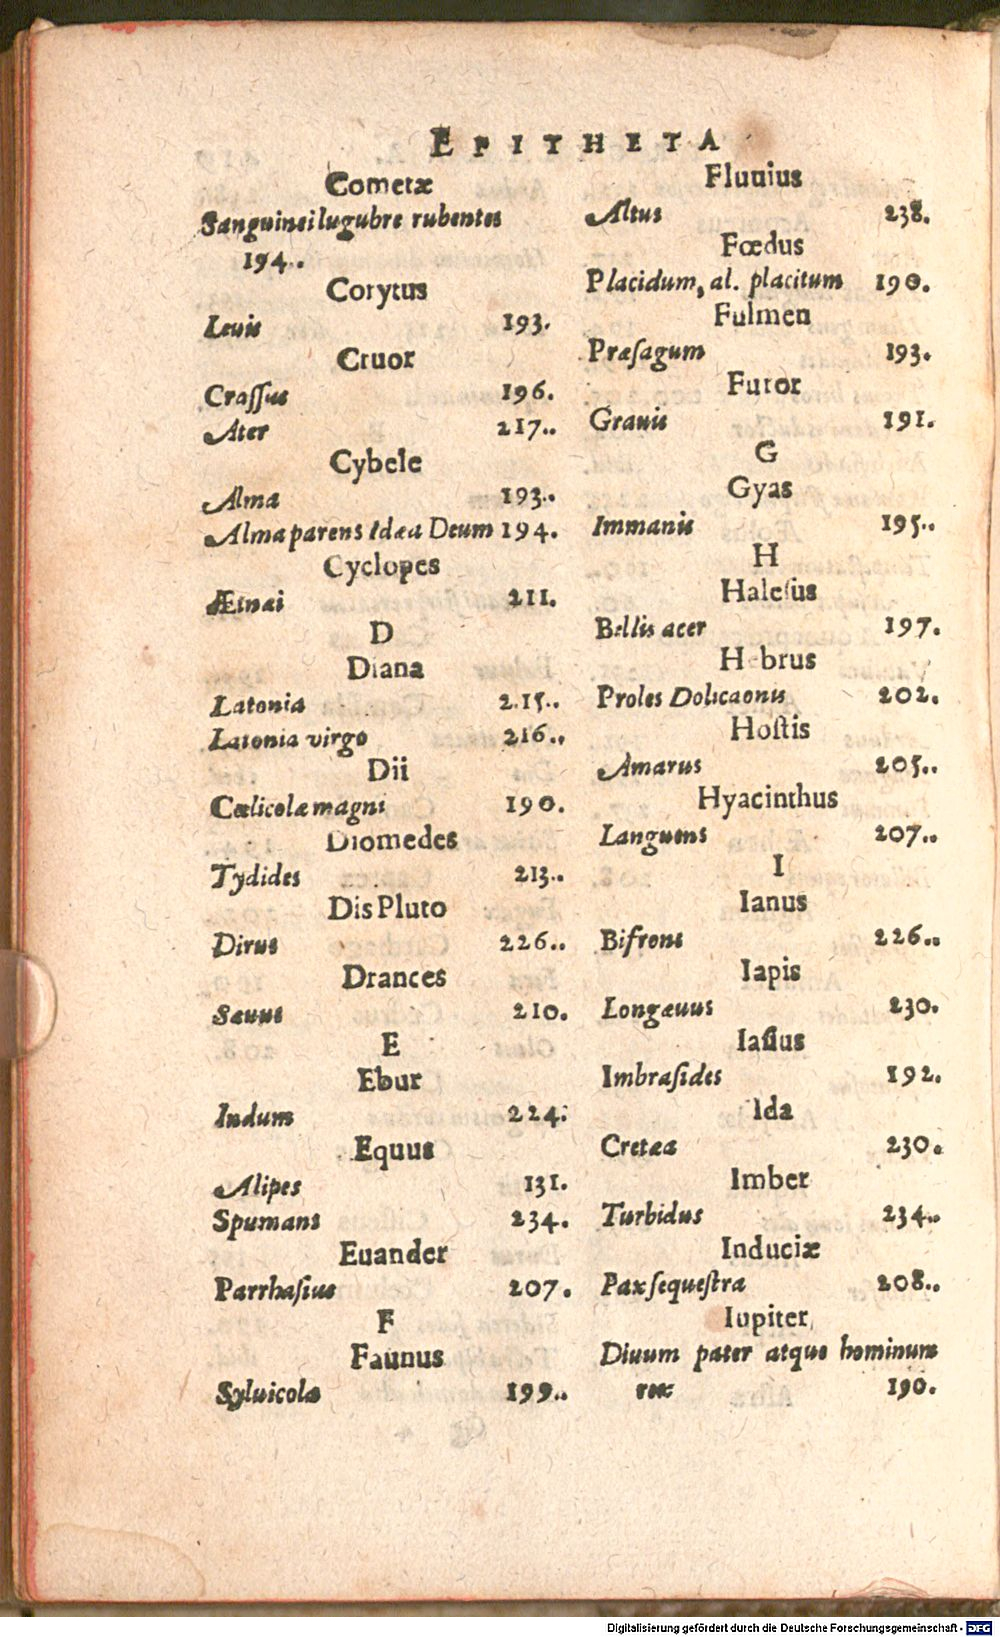 EPITHETA
Cometæ
Sanguinei lugubre rubentes
194..
Corytus
Leuis
193.
Cruor
Crassus
196.
Ater
217..
Cybele
Alma
193..
Alma parens Idæa Deum 194.
Cyclopes
Ætnæi
211.
D
Diana
Latonia
215..
Latonia virgo
216..
Dii
Cœlicolæ magni
190.
Diomedes
Tydides
213..
Dis Pluto
Dirus
226..
Drances
Sæuus
210.
E
Ebur
Indum
224.
Equus
Alipes
131.
Spumans
234.
Euander
Parrhaſius
207.
F
Faunus
Syluicola
199..
Fluuius
Altus
238.
Fœdus
Placidum, al. placitum 190.
Fulmen
Præſagum
193.
Furor
Grauis
191.
G
Gyas
Immanis
195..
H
Haleſus
Bellis acer
197.
Hebrus
Proles Dolicaonis
202.
Hoſtis
Amarus
205..
Hyacinthus
Languens
207..
I
Ianus
Bifrons
226..
Iapis
Longæuus
230.
Iaſius
Imbraſides
192.
Ida
Cretæa
230.
Imber
Turbidus
234..
Induciæ
Pax ſequeſtra
208..
Iupiter
Diuum pater atque hominum
rex
190.
Digitalisierung gefördert durch die Deutsche Forschungsgemeinschaft - DFG